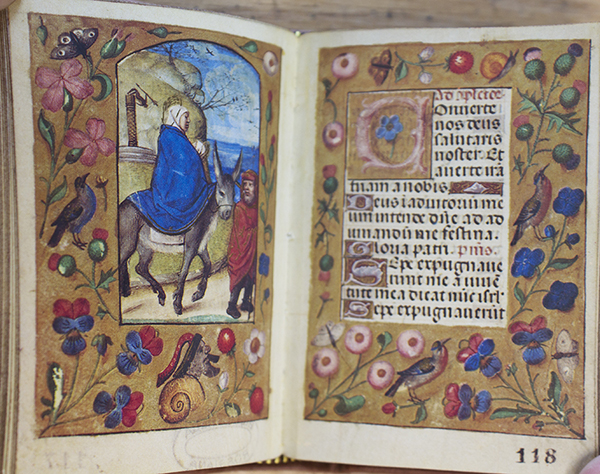 Ad
Conuerte
nos deus
salutaris
noster. Et
auerte irā
tuam a nobis.
Deus ī adiutoriū me
um intende dn̄e ad ad
iuuandū me festina.
Gloria patri.
Sepe expugnaue
runt me a iuuen
tute mea dicat nūc isrl̄
Sepe expugnauerūt
118